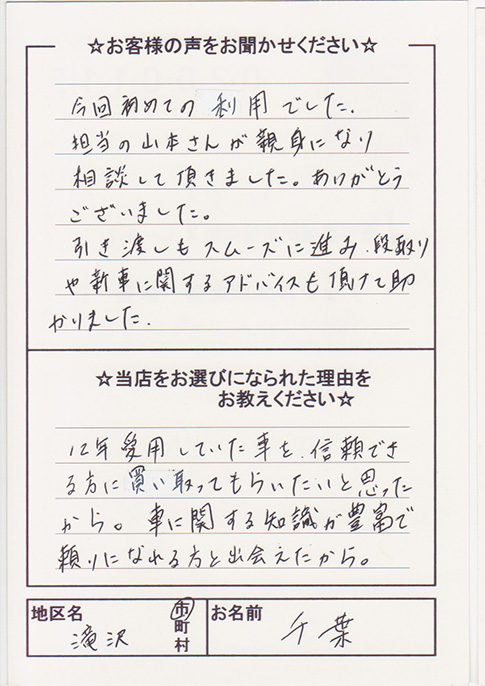 ☆お客様の声をお聞かせください☆
今回初めての利用でした.
担当の山本さんが親身になり
相談して頂きました。ありがとう
ございました。
引き渡しもスムーズに進み、段取り
や新車に関するアドバイスも頂けて助
かりました.
☆当店をお選びになられた理由を
お教えください☆
12年愛用していた車を、信頼でき
る方に買い取ってもらいたいと思った
から。車に関する知識が豊富で
頼りになれる方と出会えたから。
地区名 滝沢 市町村 お名前 千葉